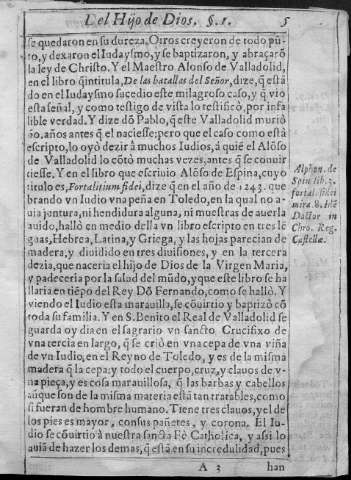 Del Hijo de Dios. §. 1. 5
se quedaron en su dureza, Otros creyeron de todo pũ-
to, y dexaron el Iudaysmo, y se baptizaron, y abraçarõ
la ley de Christo. Y el Maestro Alonso de Valladolid,
en el libro q̃ intitula, De las batallas del Señor, dize, q̃ estã
do en el Iudaysmo sucedio este milagroso caso, y q̃ vio
esta señal, y como testigo de vista lo testificò, por infa
lible verdad. Y dize dõ Pablo, q̃ este Valladolid muriò
años antes q̃ el naciesse; pero que el caso como està
escripto, lo oyò dezir à muchos Iudios, à quiẽ el Alõso
de Valladolid lo cõtò muchas vezes, antes q̃ se conuir
tiesse. Y en el libro que escriuio Alõso de Espina, cuyo
titulo es, Fortalitium fidei, dize q̃ en el año de 1243. que
brando vn Iudio vna peña en Toledo, en la qual no a-
uia juntura, ni hendidura alguna, ni muestras de auerla
auido, hallò en medio della vn libro escripto en tres lẽ
guas, Hebrea, Latina, y Griega, y las hojas parecian de
madera, y diuidido en tres diuisiones, y en la tercera
dezia, que naceria el hijo de Dios de la Virgen Maria,
y padeceria por la salud del mũdo, y que este libro se ha
llaria en tiẽpo del Rey Dõ Fernando, como se hallò. Y
viendo el Iudio esta marauilla, se cõuirtio y baptizò cõ
toda su familia. Y en S. Benito el Real de Valladolid se
guarda oy dia en el sagrario vn sancto Crucifixo de
vna tercia en largo, q̃ se criò en vna cepa de vna viña
de vn Iudio, en el Reyno de Toledo, y es de la misma
madera q̃ la cepa: y todo el cuerpo, cruz, y clauos de v-
na pieça, y es cosa marauillosa, q̃ las barbas y cabellos
aũque son de la misma materia estã tan tratables, como
si fueran de hombre humano. Tiene tres clauos, y el de
los pies es mayor, con sus pañetes, y corona. El Iu-
dio se cõuirtio à nuestra sancta Fè Catholica, y assi lo
auiã de hazer los demas, q̃ estã en su incredulidad, pues
A 3 han
Alphon. de
Spin lib. 3.
fortal. fidei
mira. 8. Idẽ
Dactor in
Chro. Reg.
Castellæ.